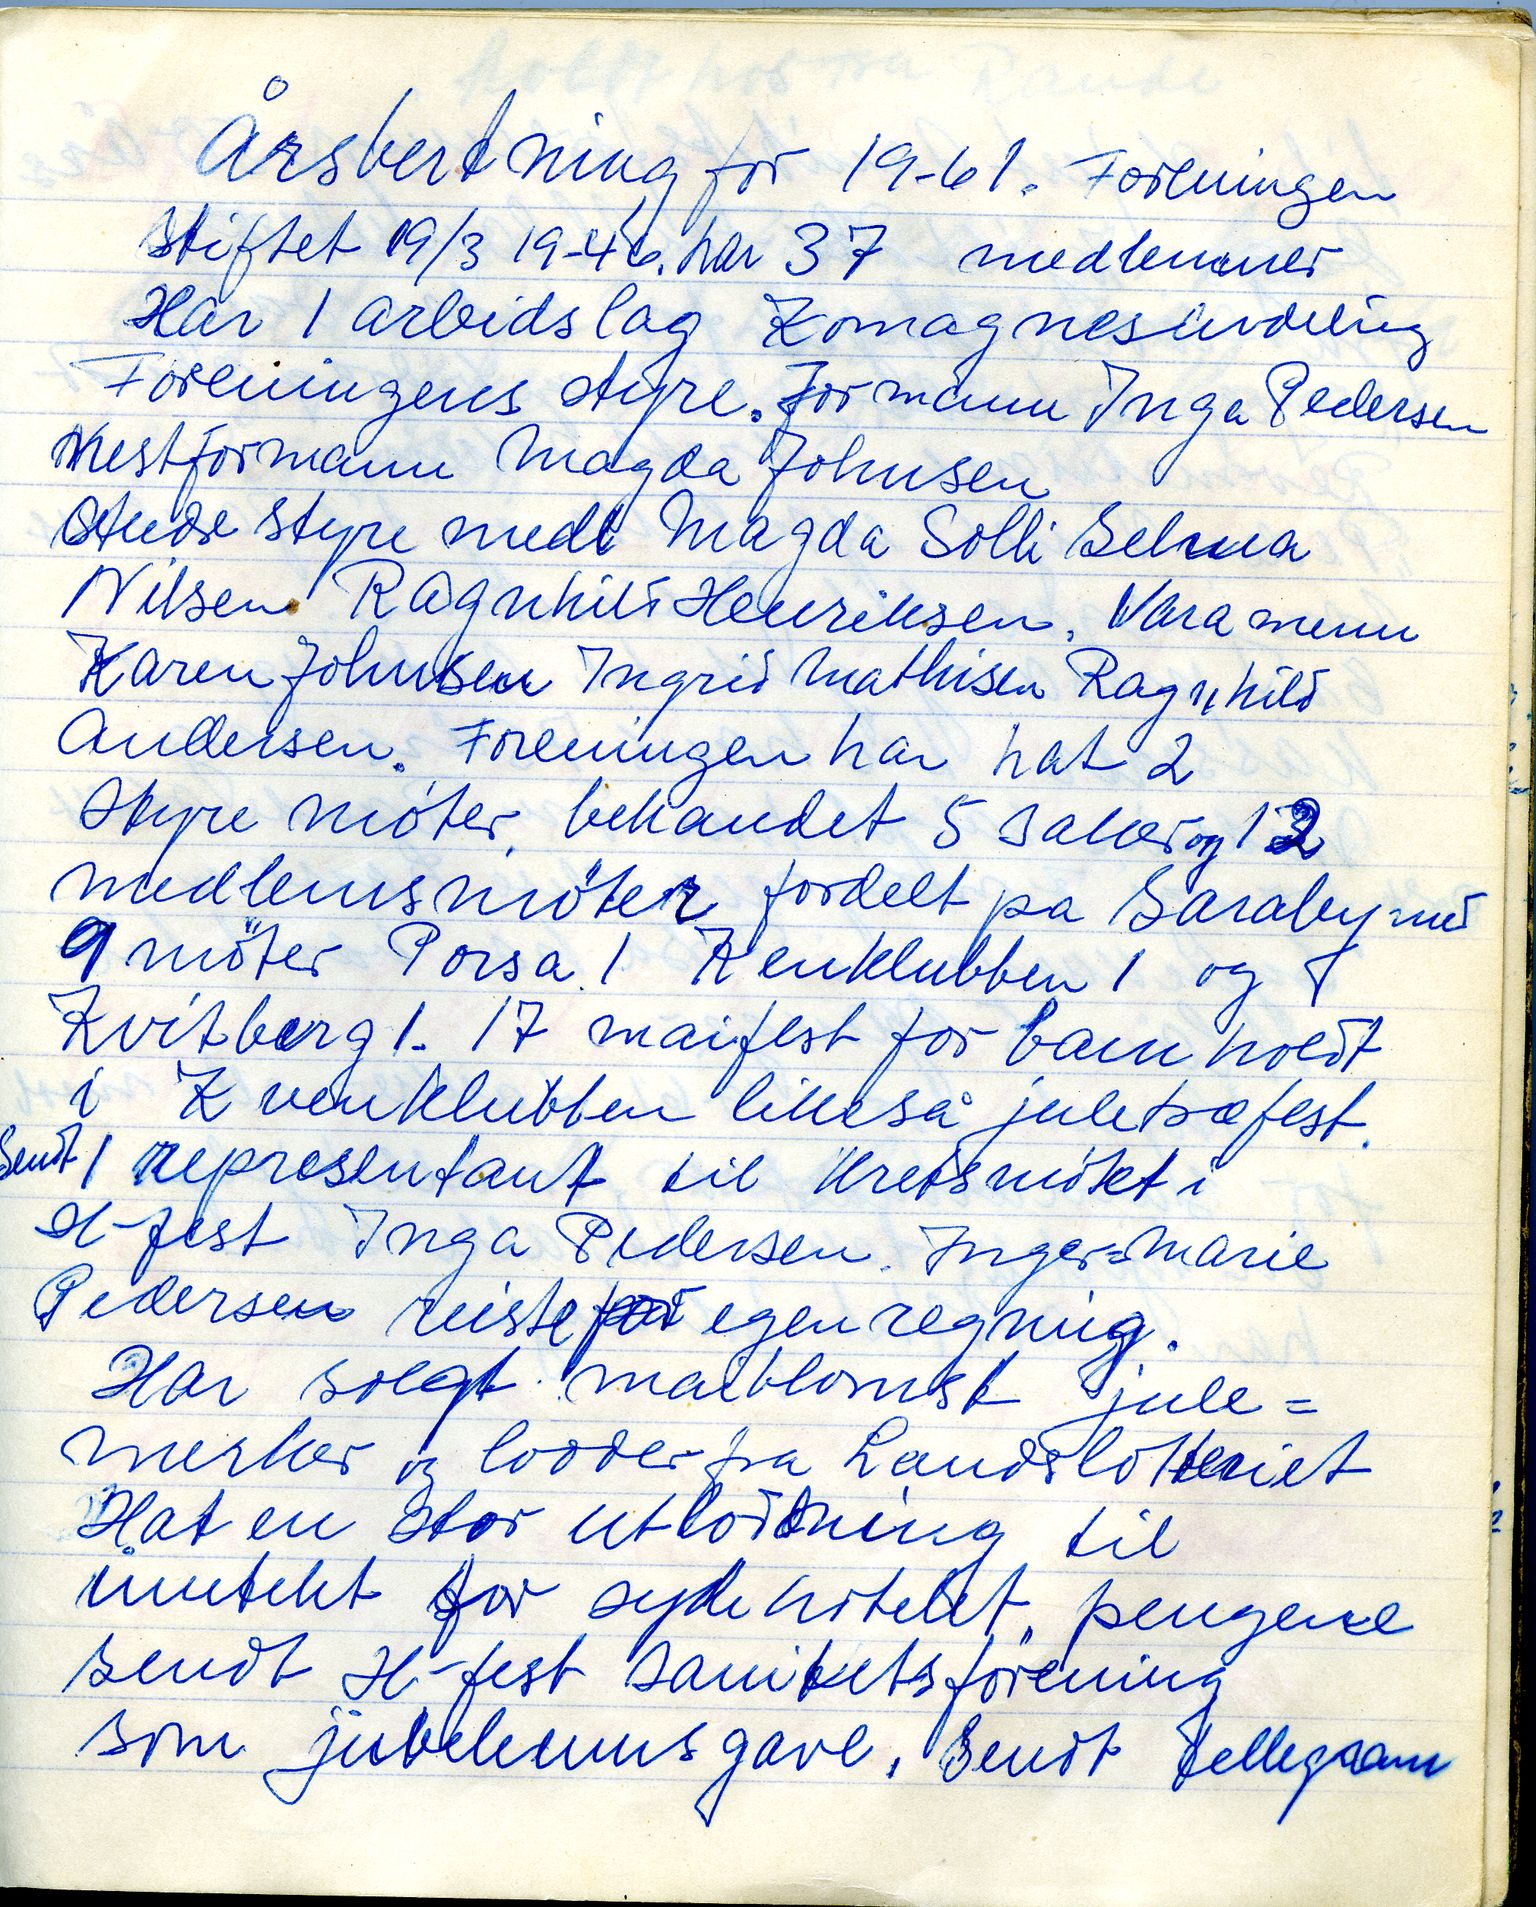 Årsbertning for 19-61. Foreningen
stiftet 19/3 19-46. har 37 medlemmer
Har 1 arbeidslag Komagnesavdeling
Foreningens styre. Formann Inga Pedersen
Nestformann Magda Johnsen
styre medl Magda Solli Selma
Nilsen Ragnhild Henriksen. Vara menn
Karen Johnsen Ingrid Mathisen Ragnhild
Andersen. Foreningen har hat 2
styre möter, behandlet 5 saker og 12
medlemsmöter fordelt pa Saraby med
9 möter Porsa 1 Kvenklubben 1 og
Kvitberg 1. 17 maifest for barn holdt
i Kvenklubben likeså juletræfest.
Sendt 1 representant til Kretsmötet i
H-fest Inga Pedersen. Inger=Marie
Pedersen reiste for egen regning.
Har solgt maiblomst jule=
merker og lodder fra Landslotteriet
Hat en stor utlodning til
inntekt for sydenhotelet, pengene
sendt H-fest sanitetsforening
som jubeleumsgave. Sendt tellegram